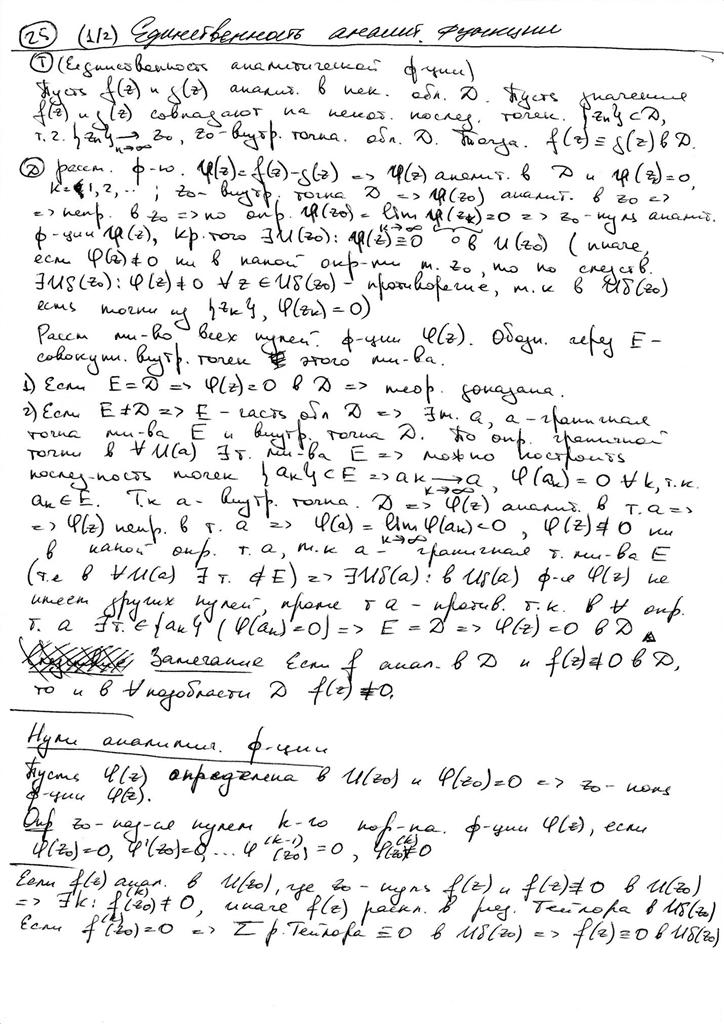 25 (1/2) Единственность аналит. функции
① (Единственность аналитической ф-ции)
Пусть f(z) и g(z) аналит. в нек. обл. D. Пусть значения
f(z) и g(z) совпадают на некот. послед. точек. {zn} ⊂ D,
т.ч. {zn} →n→∞ z0, z0 - внутр. точка. обл. D. Тогда. f(z) ≡ g(z) в D.
Ⓓ расст. ф-ю. φ(z) = f(z) - g(z) => φ(z) аналит. в D и φ(zk) = 0,
k = 1, 2, ... ; z0 - внутр. точка D => φ(z0) аналит. в z0 =>
=> непр. в z0 => по опр. φ(z0) = lim k→∞ φ(zk) = 0 => z0 - нуль аналит.
ф-ции φ(z), кр. того ∃ U(z0): φ(z) ≡ 0 в U(z0) (иначе,
если φ(z) ≢ 0 ни в какой окр-ти т. z0, то по следств.
∃ Uδ(z0): φ(z) ≠ 0 ∀ z ∈ Uδ(z0) - противоречие, т.к в Uδ(z0)
есть точки из {zk}, φ(zk) = 0)
Рассм мн-во всех нулей. ф-ции φ(z). Обозн. через E -
совокупн. внутр. точек этого мн-ва.
1) Если E = D => φ(z) = 0 в D => теор. доказана.
2) Если E ≠ D => E - часть обл D => ∃ т. a, a - граничная
точка мн-ва E и внутр. точка D. По опр. граничной
точки в ∀ U(a) ∃ т. мн-ва E => можно построить
послед-ность точек {ak} ⊂ E => ak →k→∞ a, φ(ak) = 0 ∀ k, т.к.
ak ∈ E. Тк a - внутр. точка. D => φ(z) аналит. в т. a =>
=> φ(z) непр. в т. a => φ(a) = lim k→∞ φ(ak) = 0, φ(z) ≢ 0 ни
в какой окр. т. a, т.к a - граничная т. мн-ва E
(т.е в ∀ U(a) ∃ т. ∉ E) => ∃ Uδ(a): в Uδ(a) ф-я φ(z) не
имеет других нулей, кроме т a - против. т.к. в ∀ окр.
т. a ∃ т. ∈ {ak} (φ(ak) = 0] => E = D => φ(z) = 0 в D ▲
Замечание Если f анал. в D и f(z) ≢ 0 в D,
то и в ∀ подобласти D f(z) ≢ 0.
Нули аналитич. ф-ции
Пусть φ(z) определена в U(z0) и φ(z0) = 0 => z0 - ноль
ф-ции φ(z).
Опр z0 - наз-ся нулем k-го пор-ка. ф-ции φ(z), если
φ(z0) = 0, φ'(z0) = 0, ... φ^(k-1)(z0) = 0, φ^(k)(z0) ≠ 0
Если f(z) анал. в U(z0), где z0 - нуль f(z) и f(z) ≢ 0 в U(z0)
=> ∃ k: f^(k)(z0) ≠ 0, иначе f(z) раскл. в ряд. Тейлора в Uδ(z0)
Если f^(k)(z0) = 0 => Σ р. Тейлора ≡ 0 в Uδ(z0) => f(z) ≡ 0 в Uδ(z0)